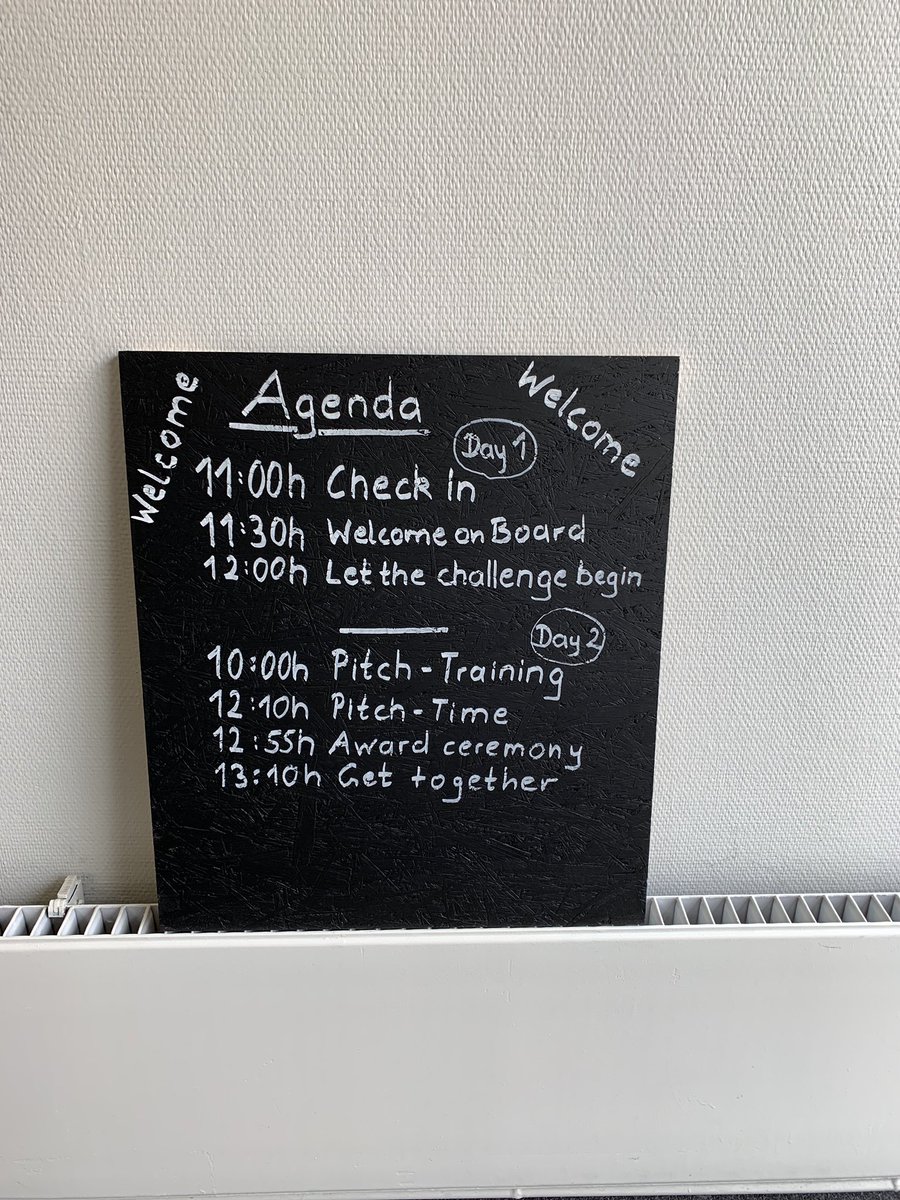 Welcome
Agenda
Welcome
Day 1
11:00h Check in
11:30h Welcome on Board
12:00h Let the challenge begin
Day 2
10:00h Pitch-Training
12:10h Pitch-Time
12:55h Award ceremony
13:10h Get together